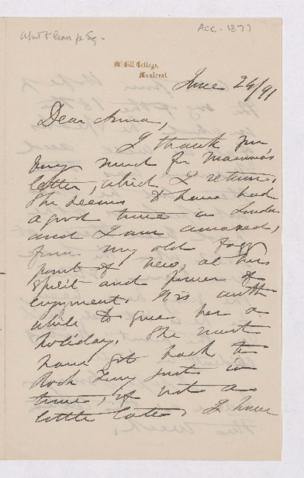 Acc. 1877
McGill College,
Montreal.
June 24/91
Dear Anna,
I thank you
very much for Mamma's
letter, which I return.
She seems to have had
a good time in London
and I am amazed,
from my old fogy
point of view, at her
spirit and power of
enjoyment. It is worth
while to give her a
holiday. She must
have got back to
Rock Ferry just in
time, if not a
little late. I have